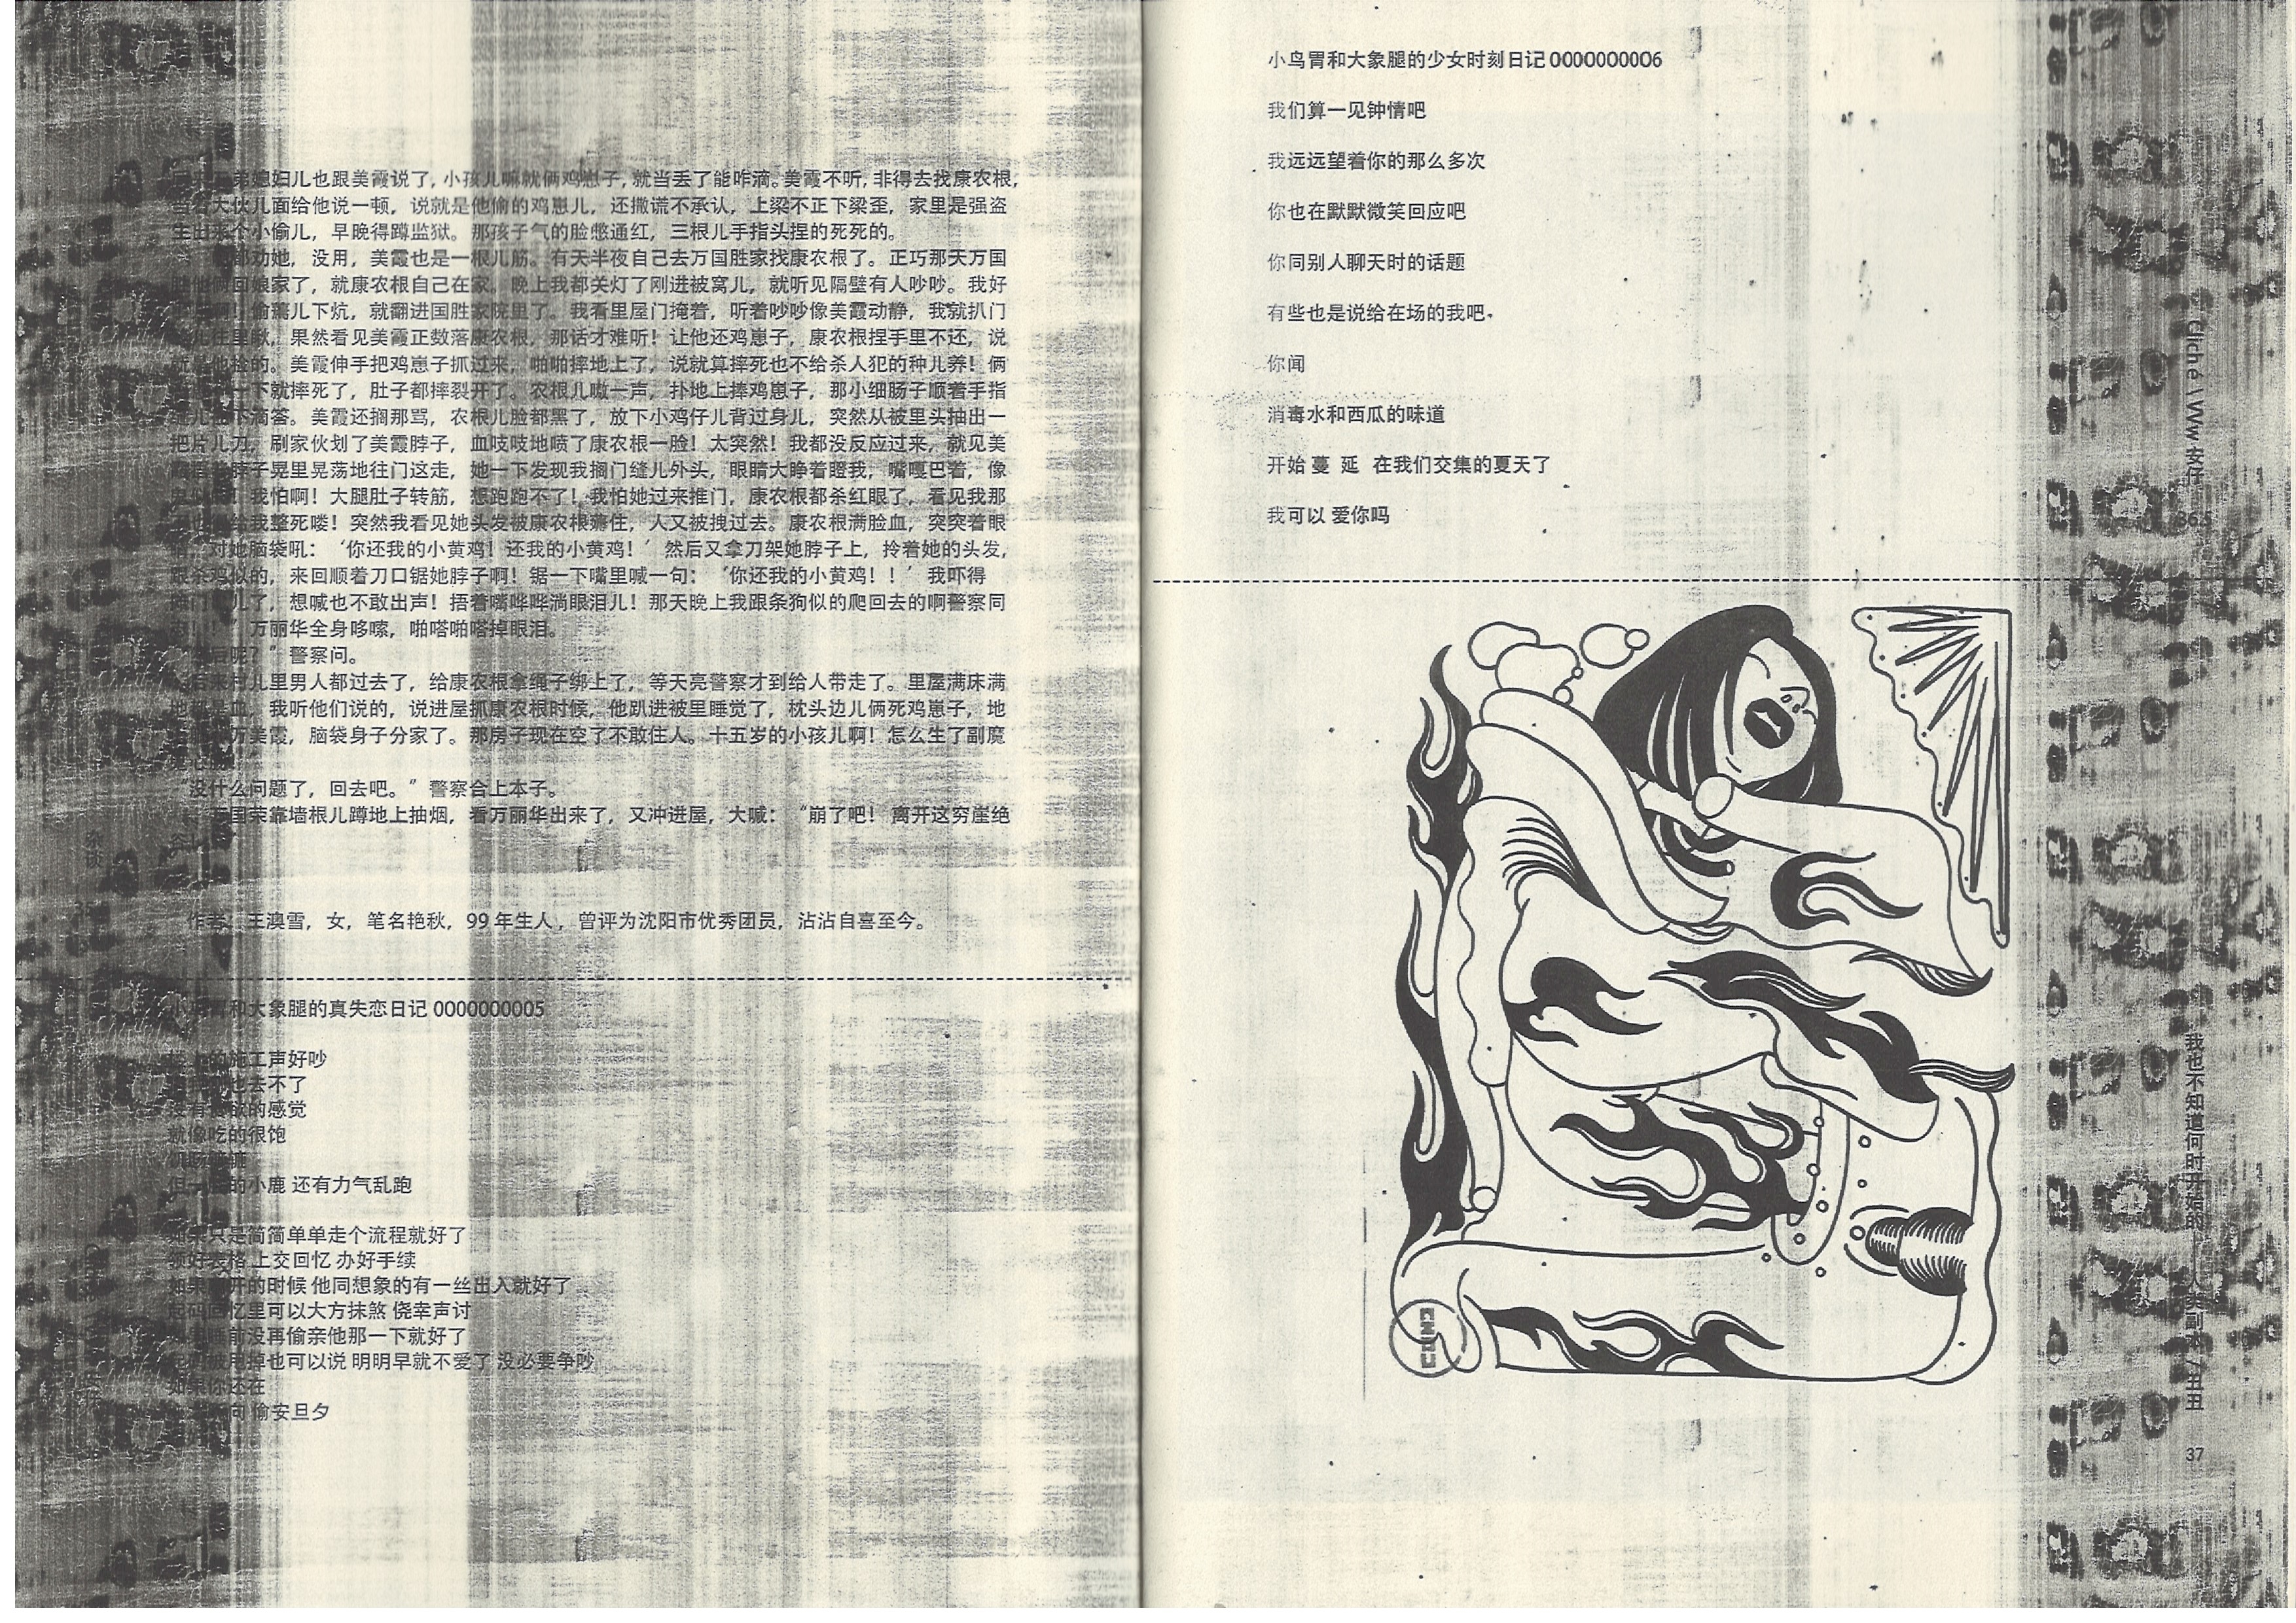 弟媳妇儿也跟美霞说了, 小孩儿嘛就俩鸡崽子, 就当丢了能咋滴。美霞不听, 非得去找康农根,
当着大伙儿面给他说一顿，说就是他偷的鸡崽儿，还撒谎不承认，上梁不正下梁歪，家里是强盗
生出来个小偷儿，早晚得蹲监狱。那孩子气的脸憋通红，三根儿手指头捏的死死的。
都劝她，没用，美霞也是一根儿筋。有天半夜自己去万国胜家找康农根了。正巧那天万国
胜他俩回娘家了，就康农根自己在家。晚上我都关灯了刚进被窝儿，就听见隔壁有人吵吵。我好
偷篱儿下炕，就翻进国胜家院里了。我看里屋门掩着，听着吵吵像美霞动静，我就扒门
往里瞅，果然看见美霞正数落康农根，那话才难听！让他还鸡崽子，康农根捏手里不还，说
就是他捡的。美霞伸手把鸡崽子抓过来，啪啪摔地上了，说就算摔死也不给杀人犯的种儿养！俩
一下就摔死了，肚子都摔裂开了。农根儿嗷一声，扑地上捧鸡崽子，那小细肠子顺着手指
滴答。美霞还搁那骂，农根儿脸都黑了，放下小鸡仔儿背过身儿，突然从被里头抽出一
把片儿刀，刷家伙划了美霞脖子，血吱吱地喷了康农根一脸！太突然！我都没反应过来，就见美
脖子晃里晃荡地往门这走，她一下发现我搁门缝儿外头，眼睛大睁着瞪我，嘴嘎巴着，像
我怕啊！大腿肚子转筋，想跑跑不了！我怕她过来推门，康农根都杀红眼了，看见我那
给我整死喽！突然我看见她头发被康农根薅住，人又被拽过去。康农根满脸血，突突着眼
睛，对她脑袋吼：‘你还我的小黄鸡！还我的小黄鸡！’然后又拿刀架她脖子上，拎着她的头发，
跟杀鸡似的，来回顺着刀口锯她脖子啊！锯一下嘴里喊一句：‘你还我的小黄鸡！！’我吓得
儿了，想喊也不敢出声！捂着嘴哗哗淌眼泪儿！那天晚上我跟条狗似的爬回去的啊警察同
志！！”万丽华全身哆嗦，啪嗒啪嗒掉眼泪。
后呢？”警察问。
后来屯儿里男人都过去了，给康农根拿绳子绑上了，等天亮警察才到给人带走了。里屋满床满
地都是血，我听他们说的，说进屋抓康农根时候，他趴进被里睡觉了，枕头边儿俩死鸡崽子，地
万美霞，脑袋身子分家了。那房子现在空了不敢住人。十五岁的小孩儿啊！怎么生了副魔
没什么问题了，回去吧。”警察合上本子。
万国荣靠墙根儿蹲地上抽烟，看万丽华出来了，又冲进屋，大喊：“崩了吧！离开这穷崖绝
谷
作者：王澳雪，女，笔名艳秋，99 年生人，曾评为沈阳市优秀团员，沾沾自喜至今。
小鸟胃和大象腿的真失恋日记 0000000005
的施工声好吵
也去不了
没有食欲的感觉
就像吃的很饱
饥肠辘辘
但 的小鹿 还有力气乱跑
如果只是简简单单走个流程就好了
领好表格 上交回忆 办好手续
如果离开的时候 他同想象的有一丝出入就好了
起码回忆里可以大方抹煞 侥幸声讨
睡前没再偷亲他那一下就好了
起码被甩掉也可以说 明明早就不爱了 没必要争吵
如果你还在
偷安旦夕
小鸟胃和大象腿的少女时刻日记 0000000006
我们算一见钟情吧
我远远望着你的那么多次
你也在默默微笑回应吧
你同别人聊天时的话题
有些也是说给在场的我吧。
你闻
消毒水和西瓜的味道
开始 蔓 延 在我们交集的夏天了
我可以 爱你吗
Cliché \ Vw 安仔
36.5
我也不知道何时开始的——人类副本 / 丑丑
37